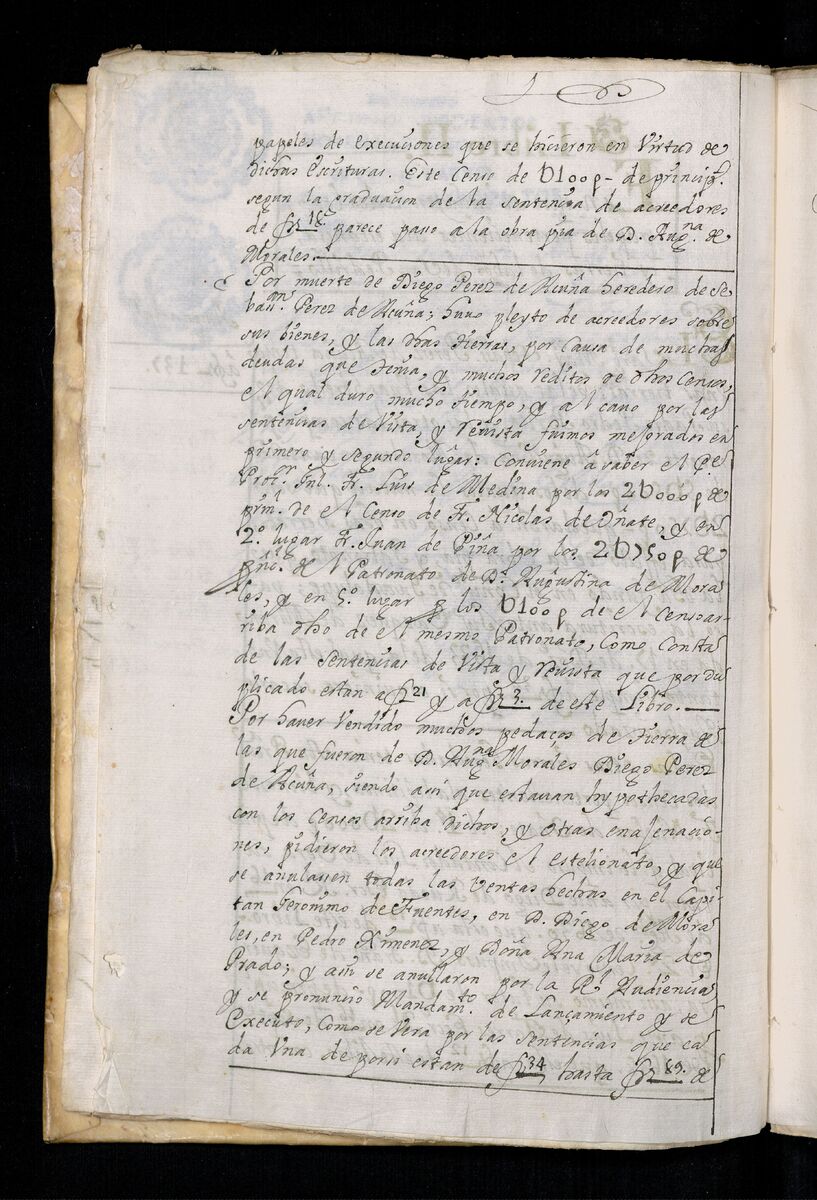 papeles de execuciones que se hicieron en Virtud de
dichas Escrituras. Este Censo de U100 p - de princip.l
segun la graduacion de la sentencia de acreedores
de f. 18. parece paso a la obra pia de D. Aug.na de
Morales.
Por muerte de Diego Perez de Acuña heredero de Se
bas.an Perez de Acuña; huuo pleyto de acreedores sobre
sus bienes, y las dhas tierras, por causa de muchas
deudas que tenia, y muchos reditos de dhos Censos,
el qual duro mucho tiempo, y al cauo por las
sentencias de Vista, y Reuista fuimos mejorados en
primero y segundo lugar: Conviene â saber el P.e
Proc.or Gnl. Fr. Luis de Medina por los 2U000 p de
prin.l de el Censo de Fr. Nicolas de Oñate, y en
2.o lugar Fr. Juan de Piña por los 2U750 p de
pnc.l de el Patronato de D.a Augustina de Mora
les, y en 5.o lugar p los U100 p de el Censo ar-
riba dho de el mesmo Patronato, Como consta
de las sentencias de Vista y reuista que por du
plicado estan a f. 21 y a f. 3. de este Libro.
Por hauer Vendido muchos pedaços de tierra de
las que fueron de D. Aug.na Morales Diego Perez
de Acuña, siendo asi que estauan hypothecadas
con los Censos arriba dichos, y otras enajenacio-
nes, pidieron los acreedores el estelionato, y que
se anulasen todas las Ventas hechas en el Capi-
tan Geronimo de Fuentes, en D. Diego de Mora-
les, en Pedro Ximenez, y Doña Ana Maria de
Prado; y asi se anullaron por la R.l Audiencia
y se pronuncio Mandam.to de Lançamiento y se
Executo, Como se Vera por las sentencias que ca
da Vna de por si estan de f. 34 hasta f. 89. de